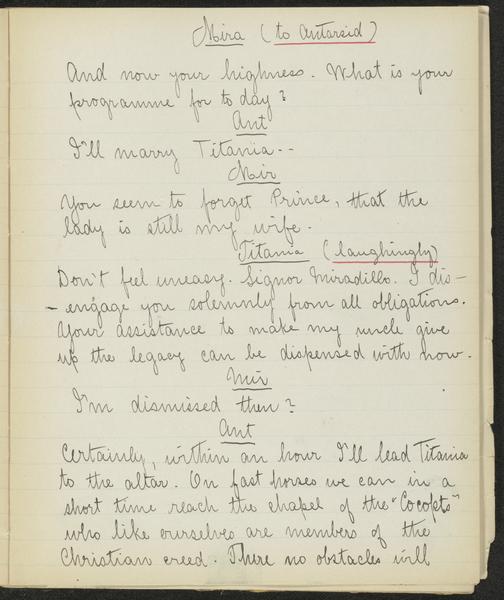 Mira (to Antarsid)
And now your highness. What is your
programme for to day?
Ant
I'll marry Titania--
Mir
You seem to forget Prince, that the
lady is still my wife.
Titania (laughingly)
Don't feel uneasy. Signor Miradillo. I dis-
-engage you solemnly from all obligations.
Your assistance to make my uncle give
up the legacy can be dispensed with now.
Mir
I'm dismissed then?
Ant
Certainly, within an hour I'll lead Titania
to the altar. On fast horses we can in a
short time reach the chapel of the "Cocopts"
who like ourselves are members of the
Christian creed. There no obstacles will